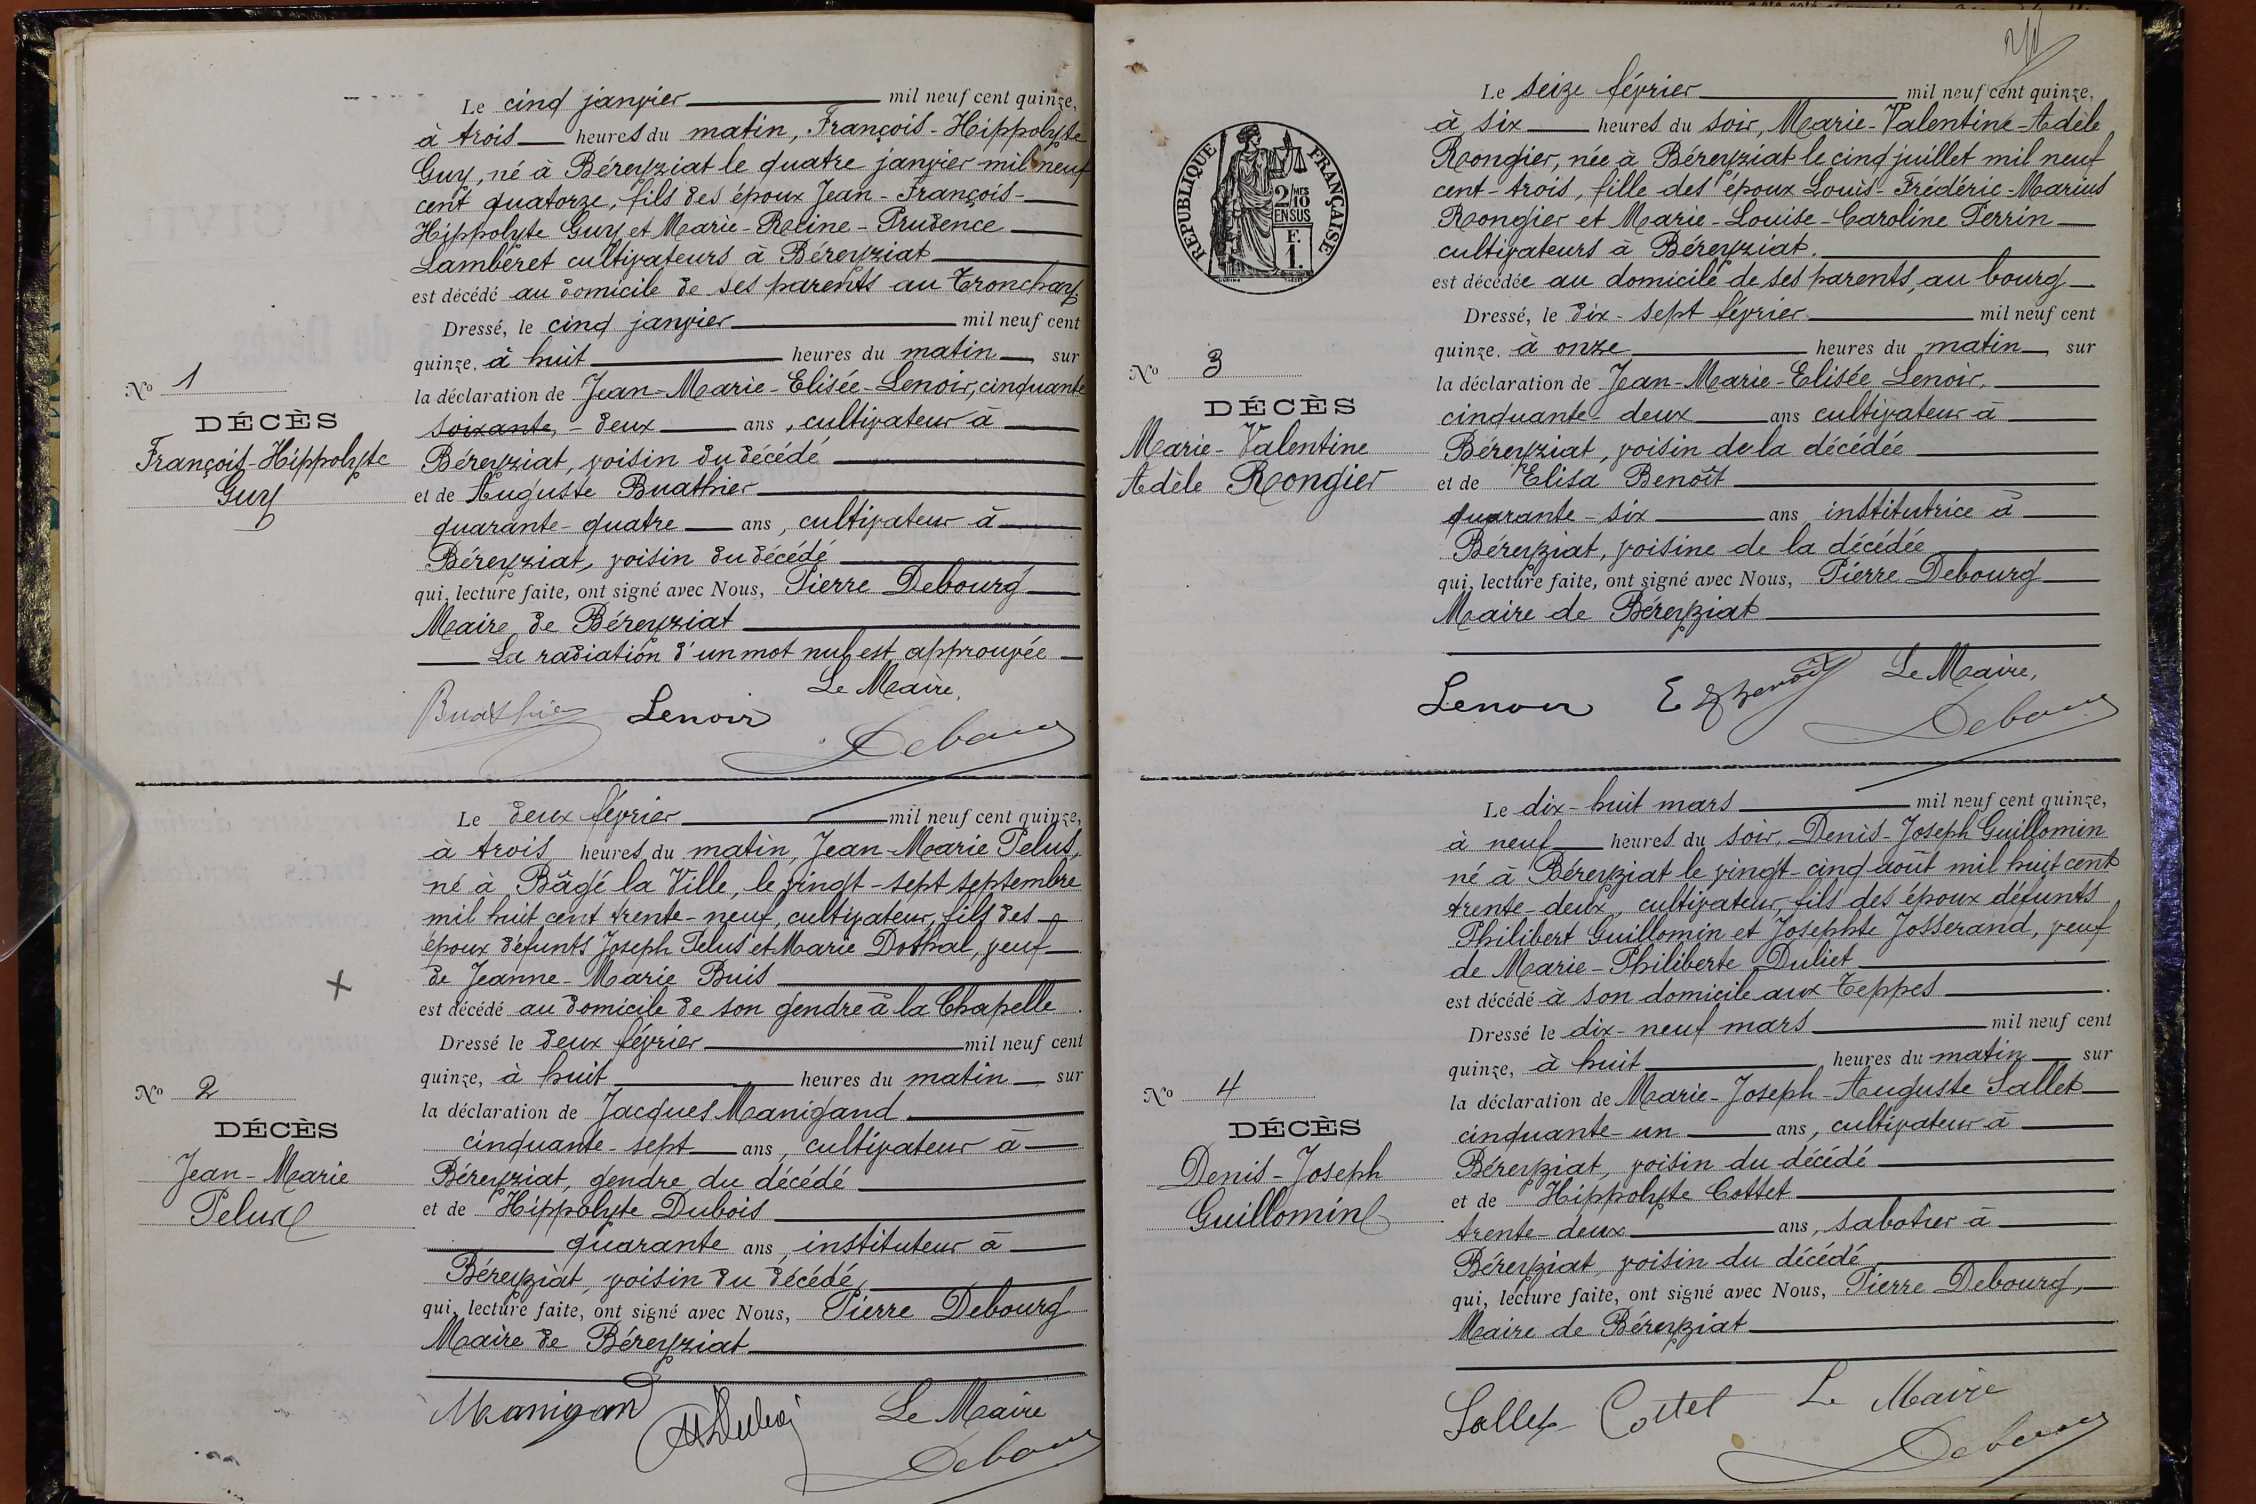 Le cinq janvier mil neuf cent quinze,
à trois heures du matin, François-Hippolyte
Guy, né à Béreyziat le quatre janvier mil neuf
cent quatorze, fils des époux Jean-François-
Hippolyte Guy et Marie-Reine-Prudence
Lambéret cultivateurs à Béreyziat
est décédé au domicile de ses parents au Tronchay
Dressé, le cinq janvier mil neuf cent
quinze, à huit heures du matin, sur
la déclaration de Jean-Marie-Elisée-Lenoir, cinquante
soixante,-deux ans, cultivateur à
Béreyziat, voisin du décédé
et de Auguste Buathier
quarante-quatre ans, cultivateur à
Béreyziat, voisin du décédé
qui, lecture faite, ont signé avec Nous, Pierre Debourg
Maire de Béreyziat
La radiation d'un mot nul est approuvée
Le Maire,
Buathier Lenoir
Debourg
No 1
DÉCÈS
François-Hippolyte
Guy
Le deux février mil neuf cent quinze,
à trois heures du matin, Jean-Marie Pelus,
né à Bâgé la Ville, le vingt-sept septembre
mil huit cent trente-neuf, cultivateur, fils des
époux défunts Joseph Pelus et Marie Dothal, veuf
de Jeanne-Marie Buis
est décédé au domicile de son gendre à la Chapelle.
Dressé le deux février mil neuf cent
quinze, à huit heures du matin sur
la déclaration de Jacques Manigand
cinquante-sept ans, cultivateur à
Béreyziat, gendre du décédé
et de Hippolyte Dubois
quarante ans, instituteur à
Béreyziat, voisin du décédé,
qui, lecture faite, ont signé avec Nous, Pierre Debourg
Maire de Béreyziat
Manigand Le Maire
HDubois
Debourg
No 2
DÉCÈS
Jean-Marie
Pelus
Le seize février mil neuf cent quinze,
à six heures du soir, Marie-Valentine-Adèle
Rongier, née à Béreyziat le cinq juillet mil neuf
cent-trois, fille des époux Louis-Frédéric-Marius
Rongier et Marie-Louise-Caroline Perrin
cultivateurs à Béreyziat.
est décédée au domicile de ses parents, au bourg
Dressé, le dix-sept février mil neuf cent
quinze, à onze heures du matin, sur
la déclaration de Jean-Marie-Elisée Lenoir,
cinquante-deux ans cultivateur à
Béreyziat, voisin de la décédée
et de Elisa Benoît
quarante-six ans institutrice à
Béreyziat, voisine de la décédée
qui, lecture faite, ont signé avec Nous, Pierre Debourg
Maire de Béreyziat
Lenoir E Benoît Le Maire,
Debourg
RÉPUBLIQUE FRANÇAISE
2/MES
10
EN SUS
F.
1.
No 3
DÉCÈS
Marie-Valentine
Adèle Rongier
Le dix-huit mars mil neuf cent quinze,
à neuf heures du soir, Denis-Joseph Guillomin
né à Béreyziat le vingt-cinq août mil huit cent
trente-deux, cultivateur, fils des époux défunts
Philibert Guillomin et Josephte Josserand, veuf
de Marie-Philiberte Duliet
est décédé à son domicile aux Teppes.
Dressé le dix-neuf mars mil neuf cent
quinze, à huit heures du matin sur
la déclaration de Marie-Joseph-Auguste Sallet
cinquante-un ans, cultivateur à
Béreyziat, voisin du décédé
et de Hippolyte Cottet
trente-deux ans, sabotier à
Béreyziat, voisin du décédé
qui, lecture faite, ont signé avec Nous, Pierre Debourg,
Maire de Béreyziat
Sallet Cottet Le Maire
Debourg
No 4
DÉCÈS
Denis-Joseph
Guillomin